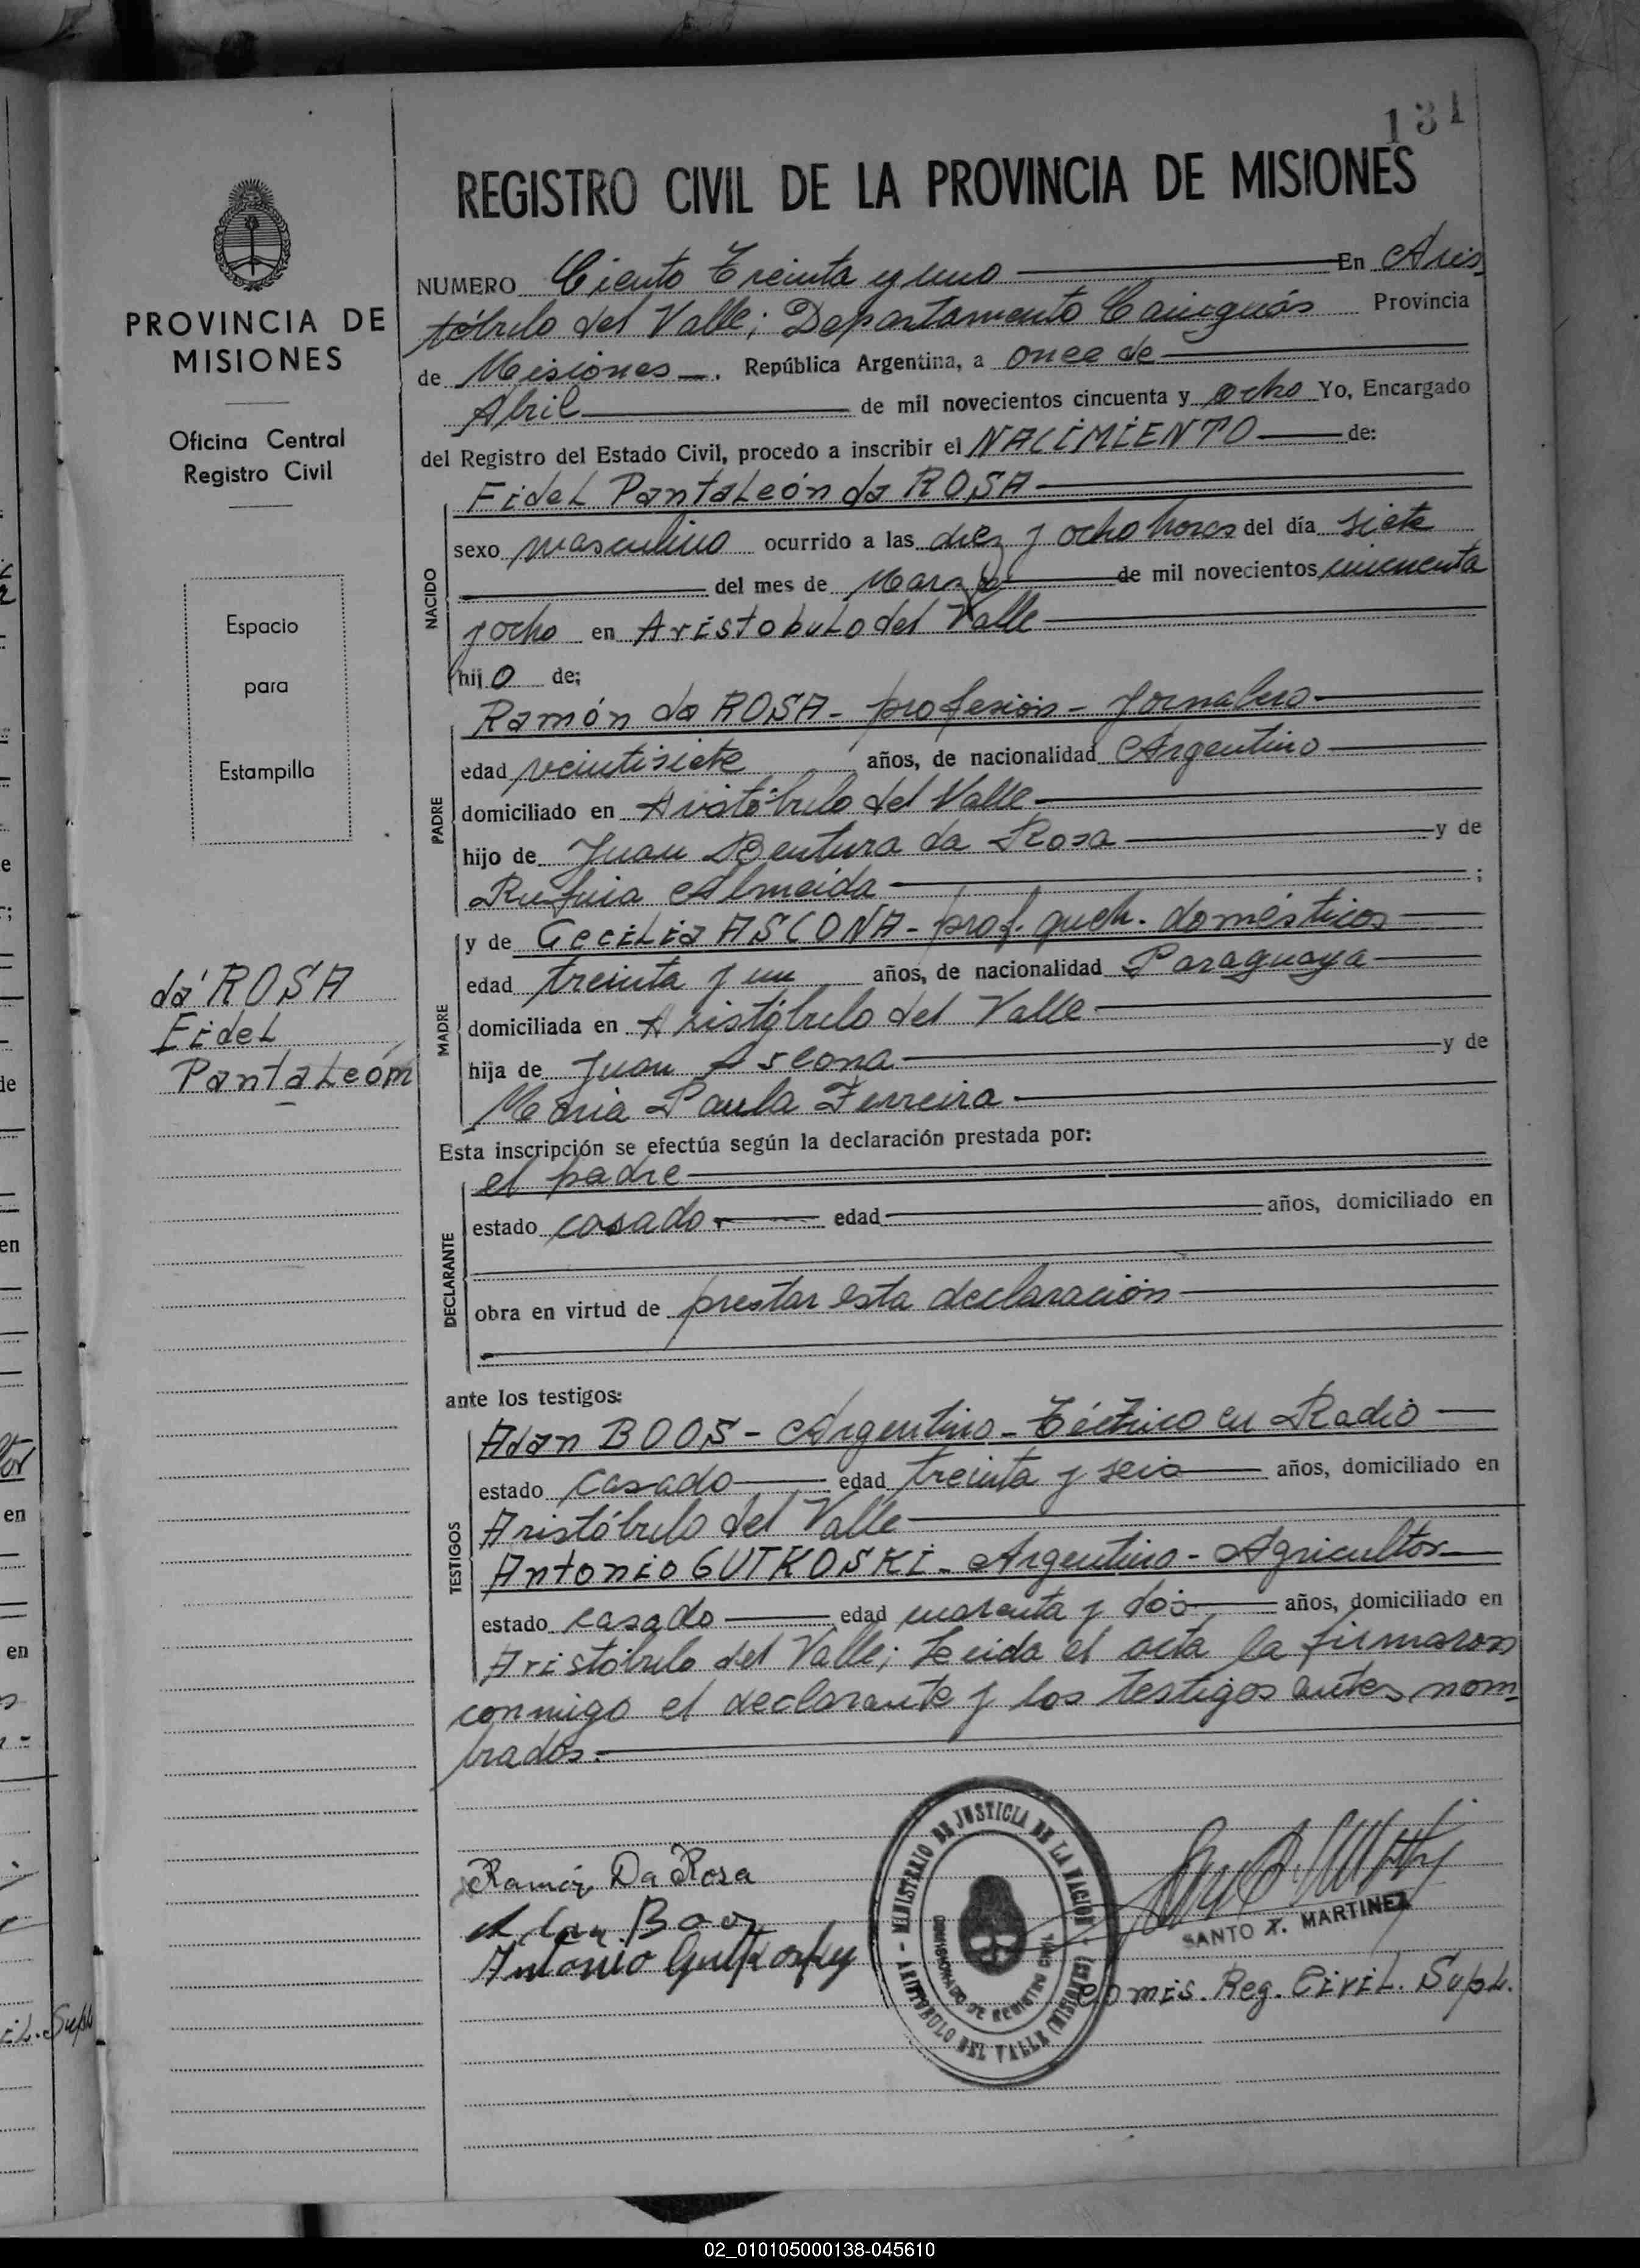 131
REGISTRO CIVIL DE LA PROVINCIA DE MISIONES
PROVINCIA DE
MISIONES
Oficina Central
Registro Civil
Espacio
para
Estampilla
da ROSA
Fidel
Pantaleóm
NUMERO Ciento Treinta y uno En Aris
tóbulo del Valle; Departamento Cainguás Provincia
de Misiones. República Argentina, a once de
Abril de mil novecientos cincuenta y ocho Yo, Encargado
del Registro del Estado Civil, procedo a inscribir el NACIMIENTO de:
NACIDO
Fidel Pantaleón da ROSA
sexo masculino ocurrido a las diez y ocho horas del día siete
del mes de Marzo de mil novecientos cincuenta
y ocho en Aristobulo del Valle
hijo de:
PADRE
Ramón da ROSA - profesión - Jornalero
edad veintisiete años, de nacionalidad Argentino
domiciliado en Aristóbulo del Valle
hijo de Juan Bentura da Rosa y de
Rufina Almeida ;
MADRE
y de Cecilia ASCONA - prof. queh. domésticos
edad treinta y un años, de nacionalidad Paraguaya
domiciliada en Aristóbulo del Valle
hija de Juan Ascona y de
Maria Paula Ferreira
Esta inscripción se efectúa según la declaración prestada por:
DECLARANTE
el padre
estado casado edad años, domiciliado en
obra en virtud de prestar esta declaración
ante los testigos:
TESTIGOS
Adan BOOS - Argentino - Téctnico en Radio
estado casado edad treinta y seis años, domiciliado en
Aristóbulo del Valle
Antonio GUTKOSKI - Argentino - Agricultor
estado casado edad cuarenta y dos años, domiciliado en
Aristóbulo del Valle; Leida el acta la firmaron
conmigo el declarante y los testigos antes nom-
brados.
Ramón Da Rosa
Adan Boos
Antonio Gutkosky
MINISTERIO DE JUSTICIA DE LA NACION
COMISIONADO DE REGISTRO CIVIL
ARISTOBULO DEL VALLE (MISIONES)
SANTO T. MARTINEZ
Comis. Reg. Civil. Supl.
02_010105000138-045610